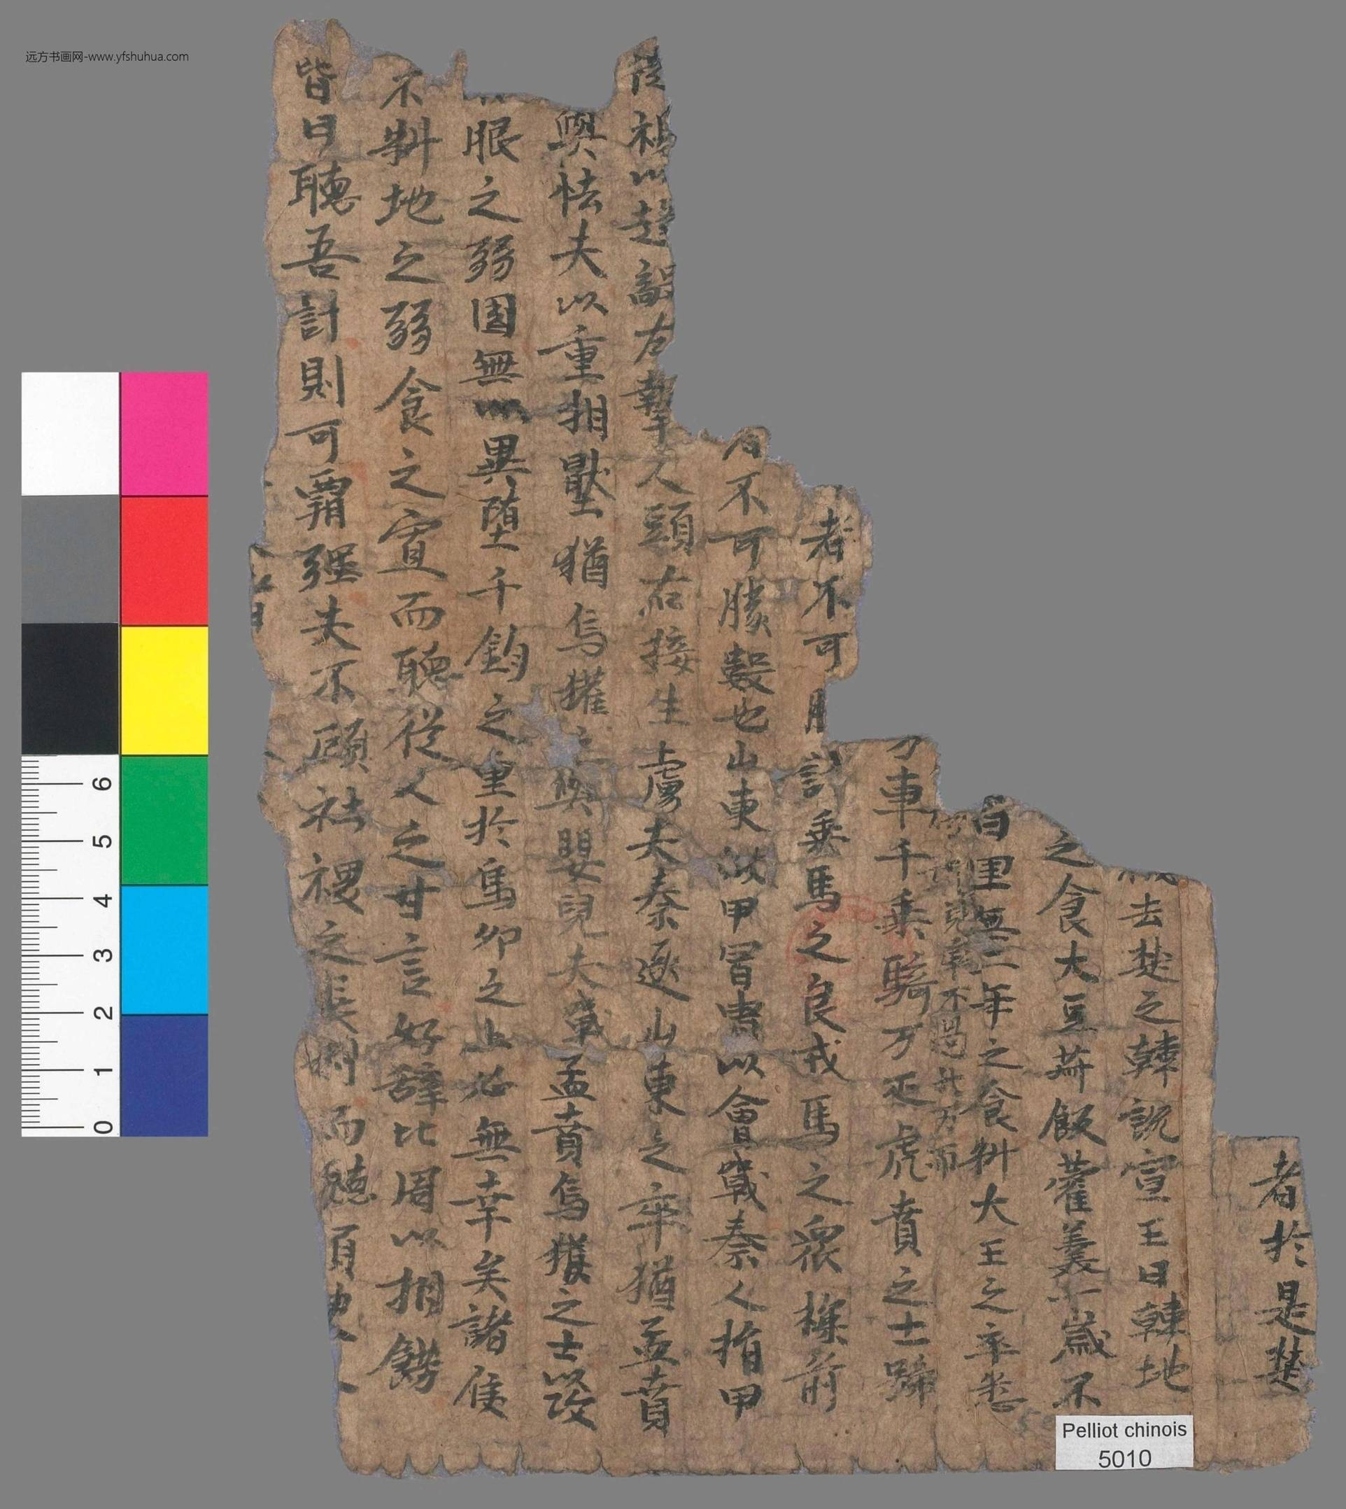 者於是楚
去楚之韓説宣王曰韓地
之食大豆菽飯藿羹一歲不
百里無二年之食料大王之卒悉
不過卅万而
万車千乘騎万疋虎賁之士蹄
者不可勝計乘馬之良戎馬之衆探前
不可勝數也山東被甲冒胄以會戰秦人捐甲
徒裼以趍敵左挈人頭右接生虜夫秦逐山東之卒猶孟賁
與怯夫以重相壓猶烏獲之與嬰兒夫戰孟賁烏獲之士以攻
不服之弱國無以異墮千鈞之重於鳥卵之上必無幸矣諸侯
不料地之弱食之寡而聽從人之甘言好辭比周以相餝
皆曰聽吾計則可霸强夫不顧社禝之長利而聽須臾
远方书画网-www.yfshuhua.com
6
5
4
3
2
1
0
Pelliot chinois
5010